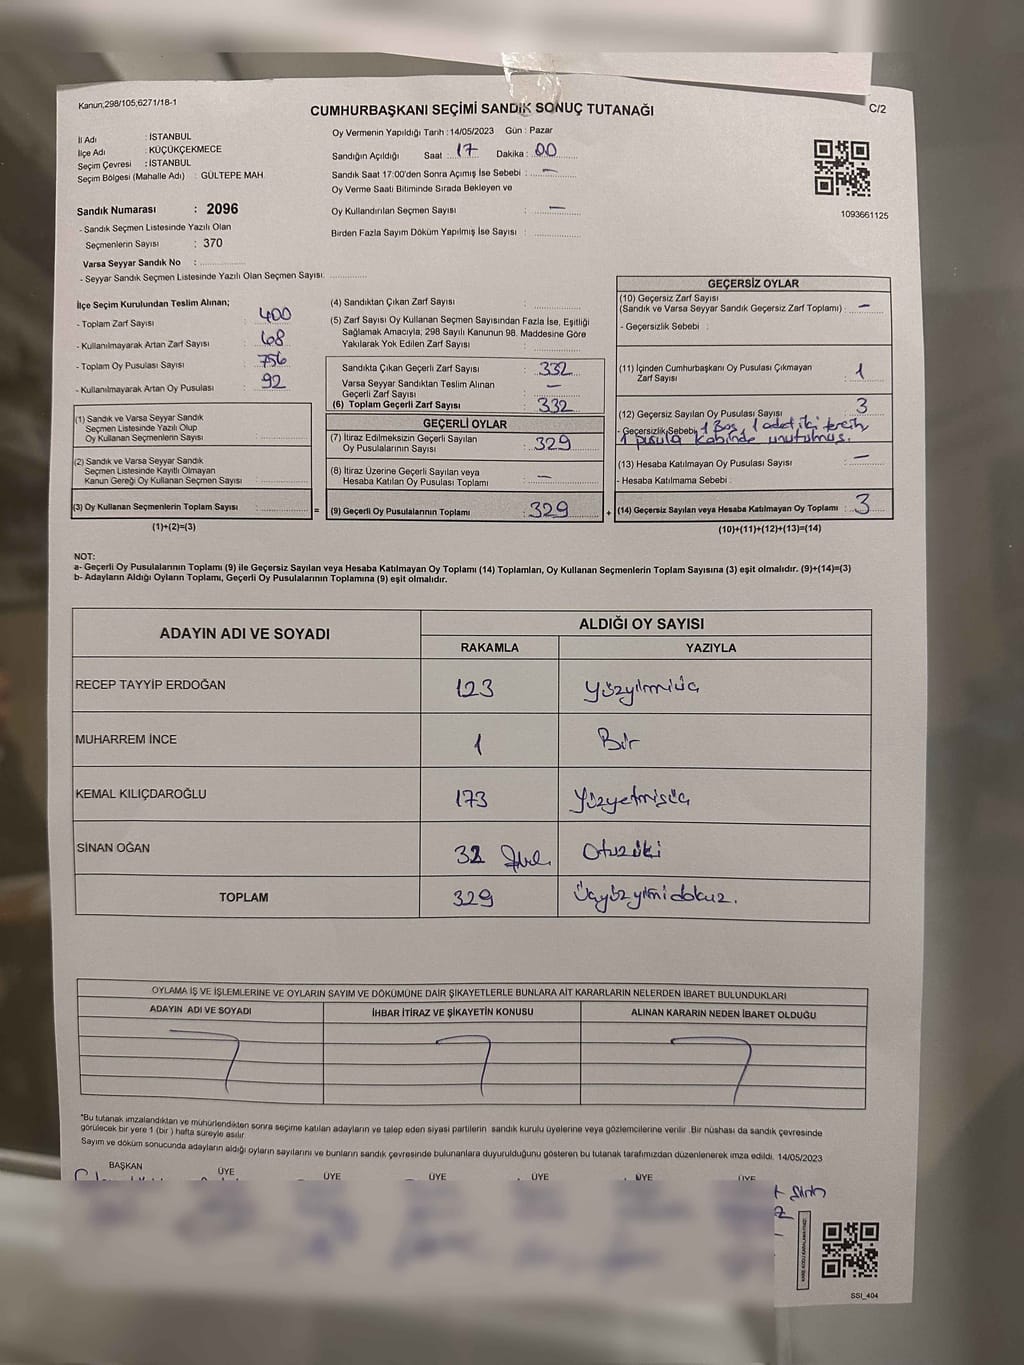 Kanun,298/105;6271/18-1
CUMHURBAŞKANI SEÇİMİ SANDIK SONUÇ TUTANAĞI
C/2
İl Adı : İSTANBUL
İlçe Adı : KÜÇÜKÇEKMECE
Seçim Çevresi : İSTANBUL
Seçim Bölgesi (Mahalle Adı) : GÜLTEPE MAH.
Oy Vermenin Yapıldığı Tarih :14/05/2023 Gün : Pazar
Sandığın Açıldığı Saat : 17 Dakika : 00
Sandık Saat 17:00'den Sonra Açımış İse Sebebi : —
Oy Verme Saati Bitiminde Sırada Bekleyen ve
Oy Kullandırılan Seçmen Sayısı : —
Birden Fazla Sayım Döküm Yapılmış İse Sayısı :
1093661125
Sandık Numarası : 2096
- Sandık Seçmen Listesinde Yazılı Olan
Seçmenlerin Sayısı : 370
Varsa Seyyar Sandık No :
- Seyyar Sandık Seçmen Listesinde Yazılı Olan Seçmen Sayısı.
İlçe Seçim Kurulundan Teslim Alınan;
- Toplam Zarf Sayısı 400
- Kullanılmayarak Artan Zarf Sayısı 68
- Toplam Oy Pusulası Sayısı 756
- Kullanılmayarak Artan Oy Pusulası 92
(1) Sandık ve Varsa Seyyar Sandık
Seçmen Listesinde Yazılı Olup
Oy Kullanan Seçmenlerin Sayısı :
(2) Sandık ve Varsa Seyyar Sandık
Seçmen Listesinde Kayıtlı Olmayan
Kanun Gereği Oy Kullanan Seçmen Sayısı :
(3) Oy Kullanan Seçmenlerin Toplam Sayısı : =
(1)+(2)=(3)
(4) Sandıktan Çıkan Zarf Sayısı :
(5) Zarf Sayısı Oy Kullanan Seçmen Sayısından Fazla İse, Eşitliği
Sağlamak Amacıyla, 298 Sayılı Kanunun 98. Maddesine Göre
Yakılarak Yok Edilen Zarf Sayısı :
Sandıkta Çıkan Geçerli Zarf Sayısı : 332
Varsa Seyyar Sandıktan Teslim Alınan
Geçerli Zarf Sayısı : —
(6) Toplam Geçerli Zarf Sayısı : 332
GEÇERLİ OYLAR
(7) İtiraz Edilmeksizin Geçerli Sayılan
Oy Pusulalarının Sayısı : 329
(8) İtiraz Üzerine Geçerli Sayılan veya
Hesaba Katılan Oy Pusulası Toplamı : —
(9) Geçerli Oy Pusulalarının Toplamı : 329 +
GEÇERSİZ OYLAR
(10) Geçersiz Zarf Sayısı
(Sandık ve Varsa Seyyar Sandık Geçersiz Zarf Toplamı) : —
- Geçersizlik Sebebi :
(11) İçinden Cumhurbaşkanı Oy Pusulası Çıkmayan
Zarf Sayısı : 1
(12) Geçersiz Sayılan Oy Pusulası Sayısı : 3
- Geçersizlik Sebebi: 1 Boş, 1 adet iki tercih
1 pusula kabinde unutulmuş.
(13) Hesaba Katılmayan Oy Pusulası Sayısı : —
- Hesaba Katılmama Sebebi :
(14) Geçersiz Sayılan veya Hesaba Katılmayan Oy Toplamı : 3
(10)+(11)+(12)+(13)=(14)
NOT:
a- Geçerli Oy Pusulalarının Toplamı (9) ile Geçersiz Sayılan veya Hesaba Katılmayan Oy Toplamı (14) Toplamları, Oy Kullanan Seçmenlerin Toplam Sayısına (3) eşit olmalıdır. (9)+(14)=(3)
b- Adayların Aldığı Oyların Toplamı, Geçerli Oy Pusulalarının Toplamına (9) eşit olmalıdır.
ADAYIN ADI VE SOYADI
ALDIĞI OY SAYISI
RAKAMLA YAZIYLA
RECEP TAYYİP ERDOĞAN 123 Yüzyirmiüç
MUHARREM İNCE 1 Bir
KEMAL KILIÇDAROĞLU 173 Yüzyetmişüç
SİNAN OĞAN 32 Otuziki
TOPLAM 329 Üçyüzyirmidokuz.
OYLAMA İŞ VE İŞLEMLERİNE VE OYLARIN SAYIM VE DÖKÜMÜNE DAİR ŞİKAYETLERLE BUNLARA AİT KARARLARIN NELERDEN İBARET BULUNDUKLARI
ADAYIN ADI VE SOYADI İHBAR İTİRAZ VE ŞİKAYETİN KONUSU ALINAN KARARIN NEDEN İBARET OLDUĞU
*Bu tutanak imzalandıktan ve mühürlendikten sonra seçime katılan adayların ve talep eden siyasi partilerin sandık kurulu üyelerine veya gözlemcilerine verilir .Bir nüshası da sandık çevresinde
görülecek bir yere 1 (bir ) hafta süreyle asılır.
Sayım ve döküm sonucunda adayların aldığı oyların sayılarını ve bunların sandık çevresinde bulunanlara duyurulduğunu gösteren bu tutanak tarafımızdan düzenlenerek imza edildi. 14/05/2023
BAŞKAN ÜYE ÜYE ÜYE ÜYE ÜYE ÜYE
SSİ_404